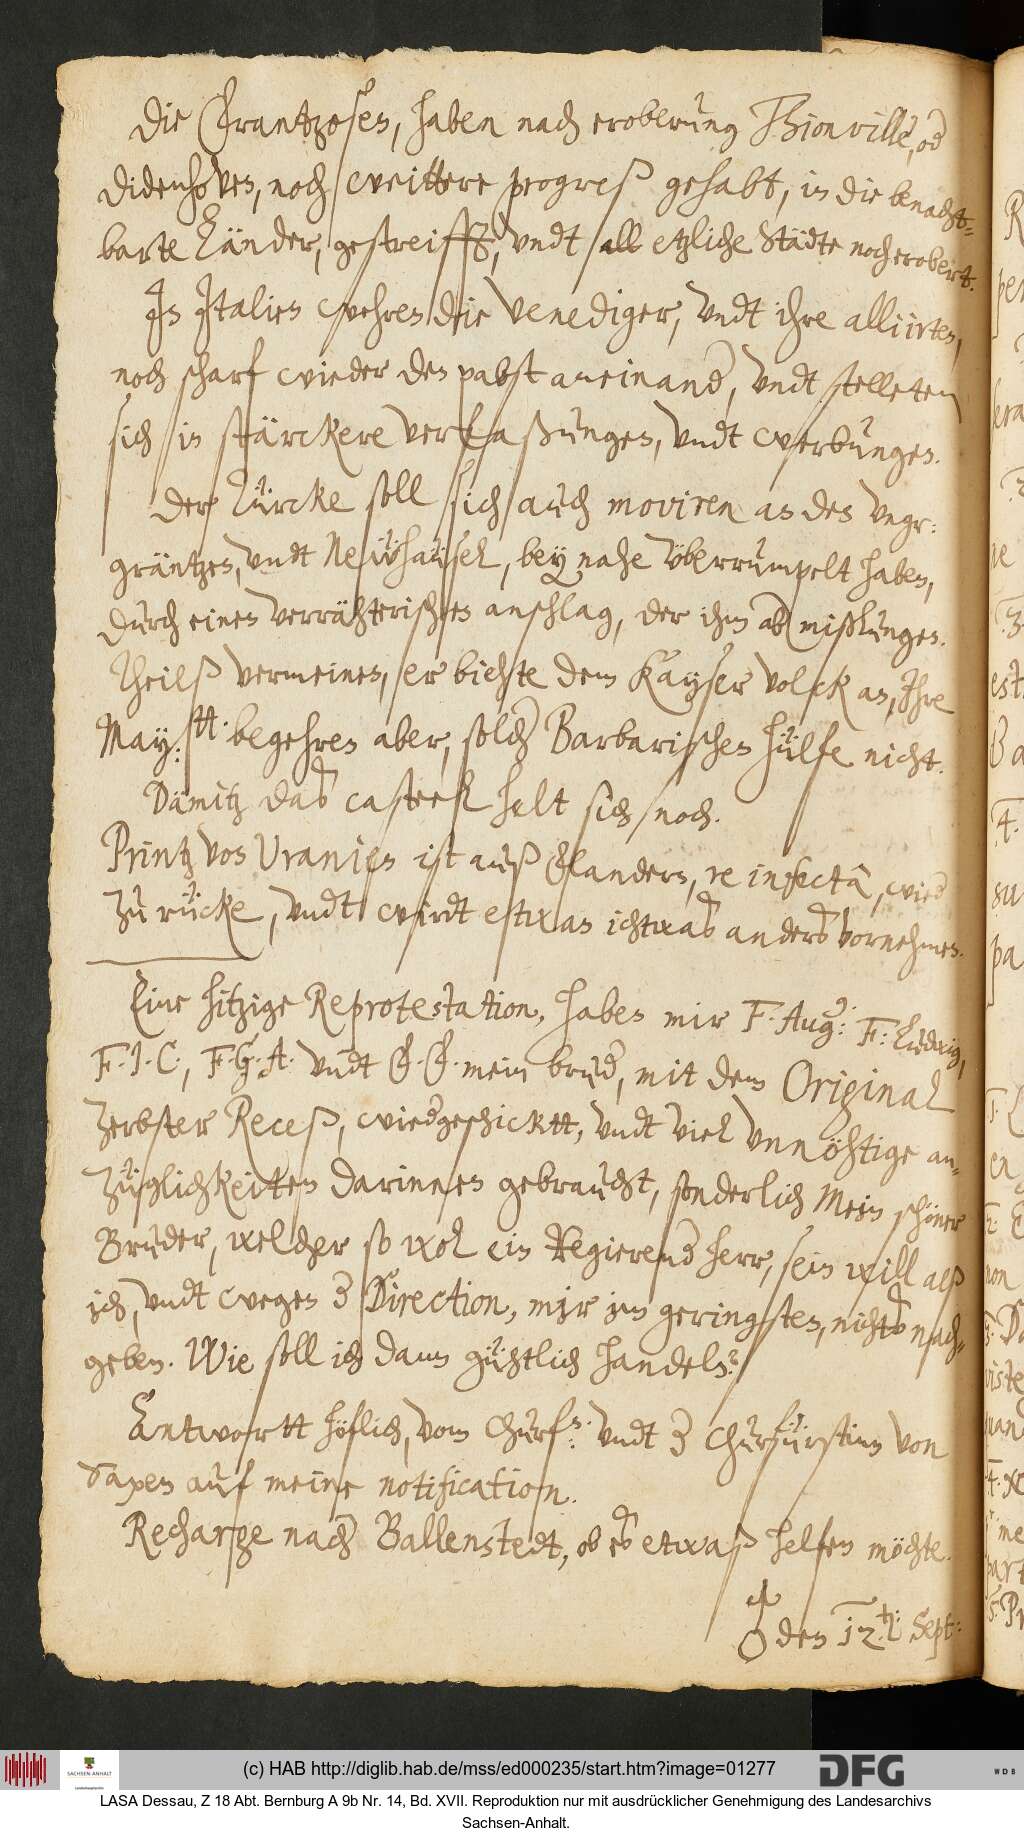 Die Frantzosen, haben nach eroberung Thionville, od
Didenhoven, noch weittere progreß gehabt, in die benacht-
barte Länder, gestreifft, undt alb etzliche Städte noch erobert.
In Italien wehren die Venediger, undt ihre alliirten,
noch scharf wieder den pabst aneinand, undt stelleten
sich in stärckere verfaßungen, undt werbungen.
Der Türcke soll sich auch moviren an den Ungr:
gräntzen, undt Neuhäusel, bey nahe überrumpelt haben,
durch einen verrähterischen anschlag, der ihm ab mißlungen.
Theilß vermeinen, er biehte dem Kayser volck an, Ihre
May:tt. begehren aber, solch Barbarischen hülfe nicht.
Dämitz daß casteel helt sich noch.
Printz von Uranien ist auß Flandern, re infectâ, wied
zu rücke, undt wirdt etwan ichtwaß anderß vornehmen.
Eine hitzige Reprotestation, haben mir F. Aug: F: Ludwig,
F. J. C., F. G. A. undt F. F. mein brud, mit dem Original
Zerbster Receß, wiedgeschicktt, undt viel unnöhtige an-
züglichkeitten darinnen gebraucht, sonderlich Mein schöner
Bruder, welcher so wol ein Regierend herr, sein will alß
ich, undt wegen d Direction, mir im geringsten, nichtß nach-
geben. Wie soll ich dann gühtlich handeln?
Antwortt höflich, vom Churf: undt d Churfürstinn von
Saxen auf meine notification.
Recharge nach Ballenstedt, ob eß etwaß helfen möchte.
☿ den 12.t: Sept:
(c) HAB http://diglib.hab.de/mss/ed000235/start.htm?image=01277
SACHSEN-ANHALT
DFG
WDB
LASA Dessau, Z 18 Abt. Bernburg A 9b Nr. 14, Bd. XVII. Reproduktion nur mit ausdrücklicher Genehmigung des Landesarchivs
Sachsen-Anhalt.